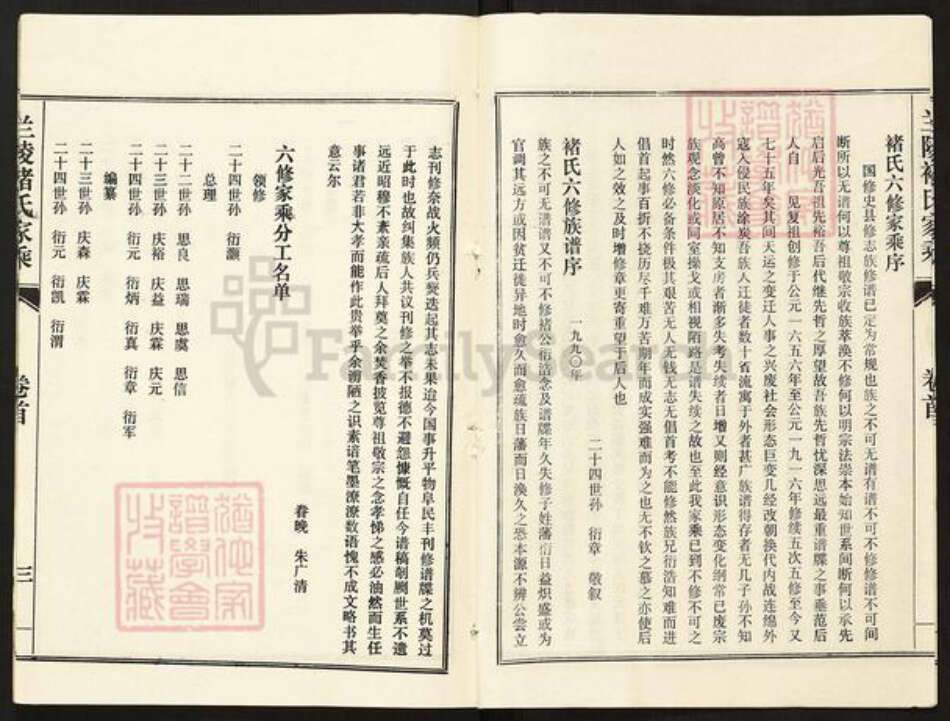 褚氏六修家乘序
国修史县修志族修谱已定为常规也族之不可无谱有谱不可不修修谱不可间
断所以无谱何以尊祖敬宗收族萃涣不修何以明宗法崇本始知世系间断何以承先
启后光吾祖先裕吾后代继先哲之厚望故吾族先哲忧深思远最重谱牒之事垂范后
人自 见复祖创修于公元一六五六年至公元一九一六年修续五次五修至今又
七十五年矣其间天运之变迁人事之兴废社会形态巨变几经改朝换代内战连绵外
寇入侵民族涂炭吾族人迁徙者数十百流寓于外者甚广族谱得存者无几子孙不知
高曾不知原居不知支房者渐多失考失续者日增又则经意识形态变化纲常已废宗
族观念淡化或同室操戈或相视陌路是谱失续之故也至此我家乘已到不修不可之
时然六修必备条件极其艰苦无人无钱无志无倡首考不能修然族兄衍浩知难而进
倡首起事百折不挠历尽千难万苦期年而成实强难而为之也无不钦之慕之亦使后
人如之效之及时增修章更寄重望于后人也
二十四世孙 衍章 敬叙
褚氏六修族谱序 一九九〇年
族之不可无谱谱又不可不修褚公衍浩念及谱牒年久失修子姓藩衍日益炽盛或为
官调其远方或因贫迁徙异地时愈久而愈疏族日藩而日涣久之恐本源不辨公尝立
志刊修奈战火频仍兵燹迭起其志未果迨今国事升平物阜民丰刊修谱牒之机莫过
于此时也故纠集族人共议刊修之举不报德不避怨慷慨自任今谱稿剞劂世系不遗
远近昭穆不紊亲疏后人拜奠之余焚香披览尊祖敬宗之念孝悌之感必油然而生任
事诸君若非大孝而能作此贵举乎余谫陋之识素谙笔墨潦潦数语愧不成文略书其
意云尔
眷晚 朱广清
六修家乘分工名单
领修
二十四世孙 衍灏
总理
二十二世孙 思良 思瑞 思虞 思信
二十三世孙 庆裕 庆益 庆霖 庆元
二十四世孙 衍元 衍炳 衍真 衍章 衍军
编纂
二十三世孙 庆森 庆霖
二十四世孙 衍元 衍凯 衍渭
兰陵褚氏家乘 卷首 三
兰陵褚氏家乘 卷首
FamilySearch